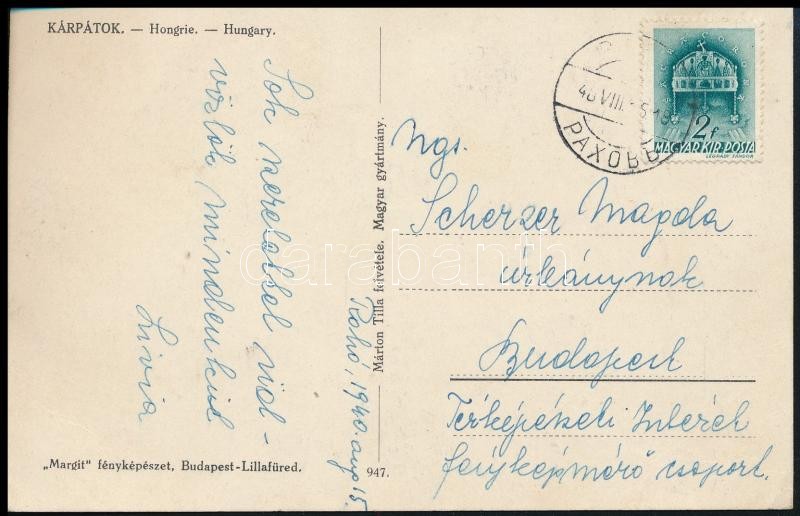 KÁRPÁTOK. — Hongrie. — Hungary.
Sok szeretettel üd-
vözlök mindenkit
Livia
Rahó, 1940. aug 15.
„Margit" fényképészet, Budapest-Lillafüred.
947.
Márton Tilla felvétele. Magyar gyártmány.
РАХОВ
MAGYAR KIR. POSTA
2f
LÉGRÁDY SÁNDOR
Ngs.
Scherzer Magda
úrleánynak
Budapest
Térképészeti Intézet
fényképmérő csoport.
darabanth